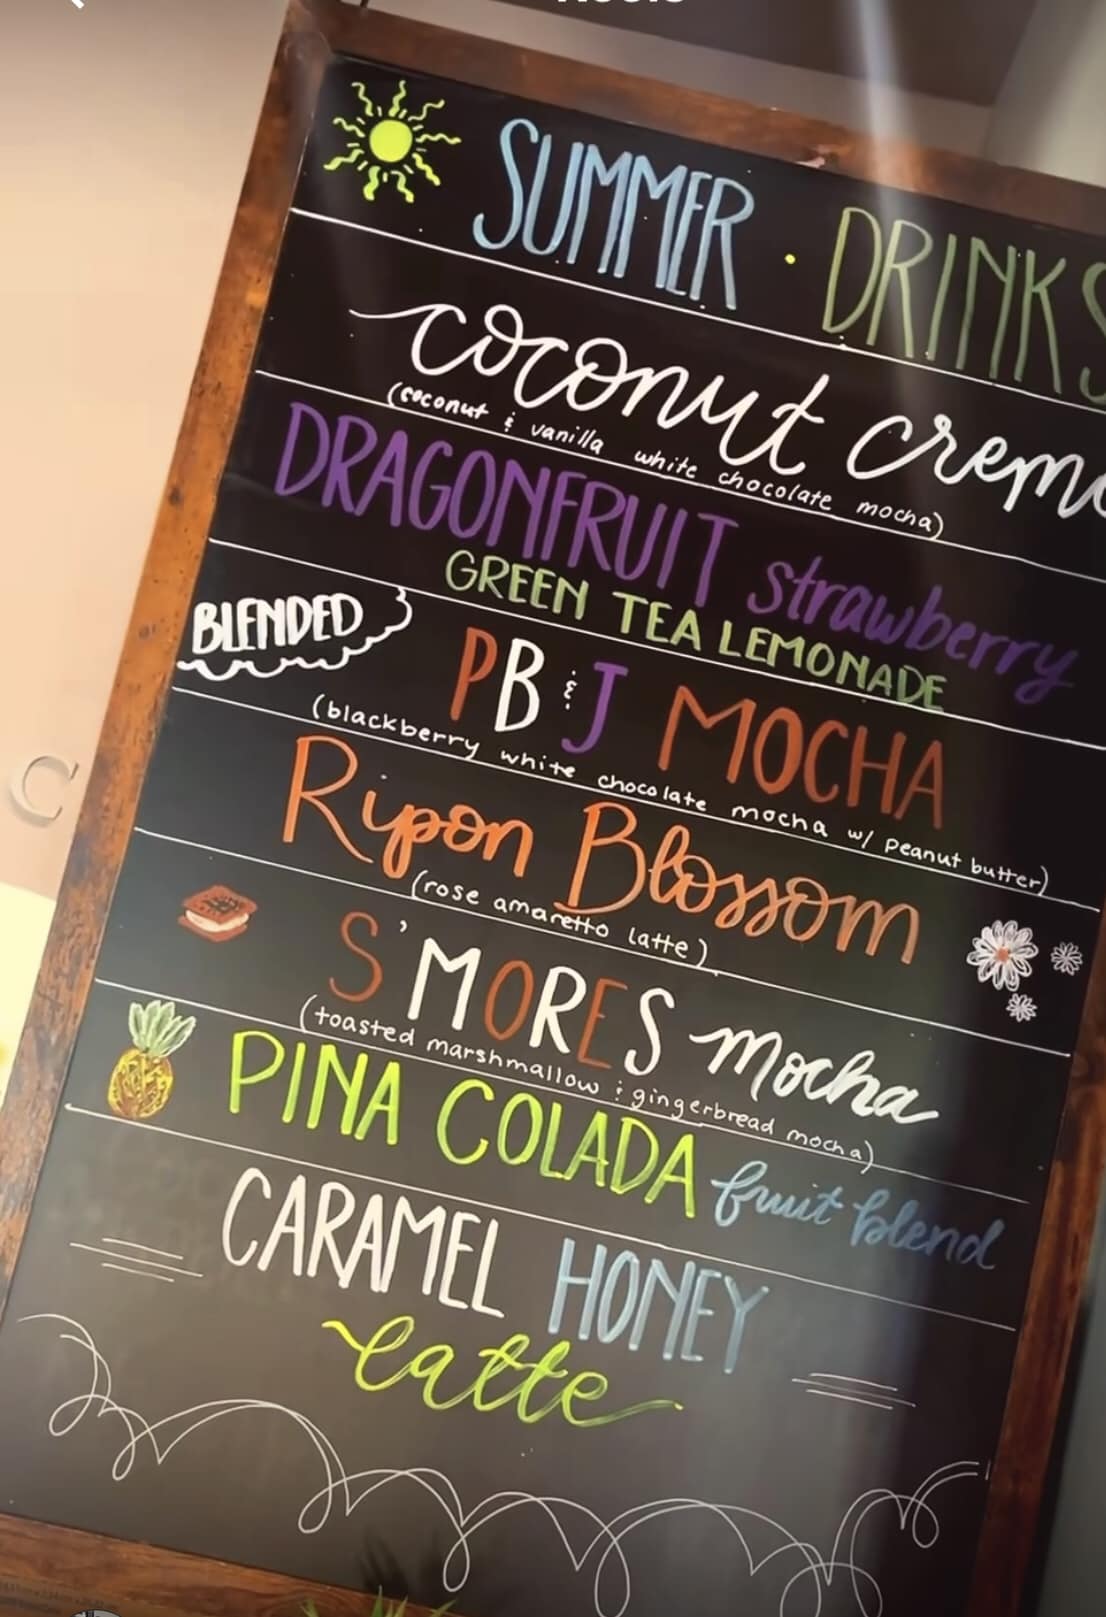 SUMMER · DRINKS
coconut creme
(coconut & vanilla white chocolate mocha)
DRAGONFRUIT strawberry
GREEN TEA LEMONADE
BLENDED
PB & J MOCHA
(blackberry white chocolate mocha w/ peanut butter)
Ripon Blossom
(rose amaretto latte)
S'MORES mocha
(toasted marshmallow & gingerbread mocha)
PINA COLADA fruit blend
CARAMEL HONEY
latte
C